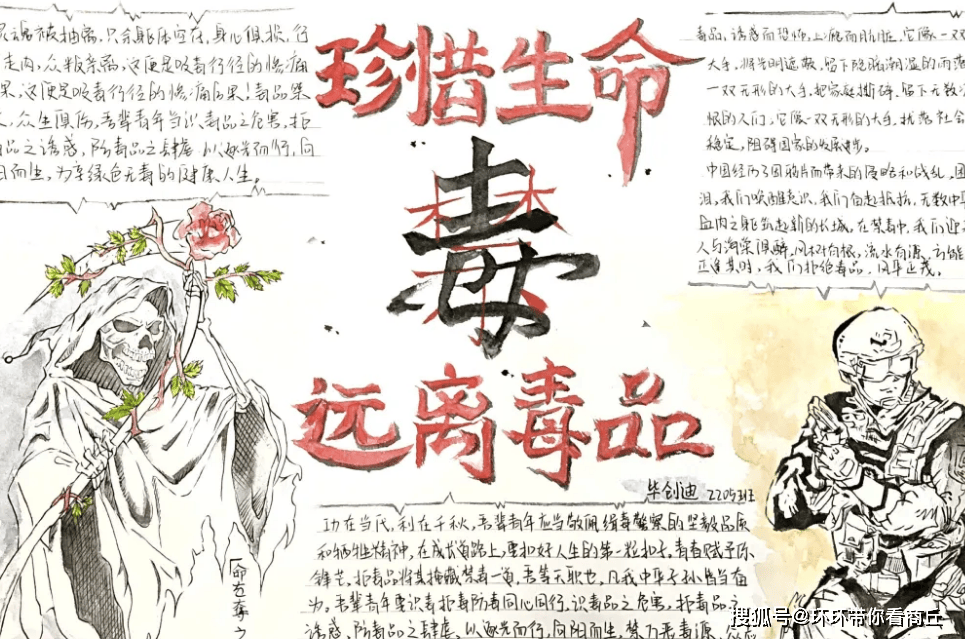 灵魂被抽离,只分躯体空在,身心俱损,行
走肉,众叛亲离,这便是吸毒行径的惨痛
果,这便是吸毒行径的惨痛后果!毒品
人,众生俱伤,吾辈青年当识毒品之危害,拒
品之诱惑,防毒品之肆虐,以逐光而行,向
阳而生,为享绿色无毒的健康人生。
珍惜生命
毒
禁
远离毒品
毒品,诱惑而恐怖,上瘾而肮脏,它像一双
大手,将光明遮蔽,留下
一双无形的大手,把家庭撕碎,留下无数
恨的人们,它像一双无形的大手,扰乱社会
稳定,阻碍国家的发展进步。
中国经历了因鸦片而带来的侵略和战乱,
泪,我们唤醒意识,我们奋起抵抗,无数中
血肉之躯筑起新的长城,在禁毒中,我们
人与海棠俱醉,风怀有根,流水有源,
正逢其时,我们拒绝毒品,风华正茂。
毕创迪 2205班
功在当代,利在千秋,吾辈青年应当敬佩缉毒警察的坚毅品质
和牺牲精神,在成长道路上,要扣好人生的第一粒扣子。青春赋予你
锋芒,拒毒品将其掩藏,禁毒一道,吾等天职也,凡我中华子孙皆当奋
为。吾辈青年要识毒拒毒防毒同心同行,识毒品之危害,拒毒品之
诱惑,防毒品之肆虐,以逐光而行,向阳而生,禁万恶毒源,
命若
之
搜狐号@环环带你看商丘